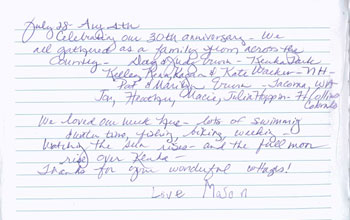 July 28 - Aug 4th
Celebrating our 30th anniversary - We
all gathered as a family from across the
Country - Doug & Judy - Keuka Park
Kelley, Karen & Kate - NH -
& Marilyn - Tacoma, WA
Jon, Heather, Macie, Julia - Ft Collins
Colorado
We loved our week here - lots of swimming
time, fishing, biking,
Watching the sun rises - and the full moon
rise over Keuka -
Thanks for your wonderful cottages!
Love Mason